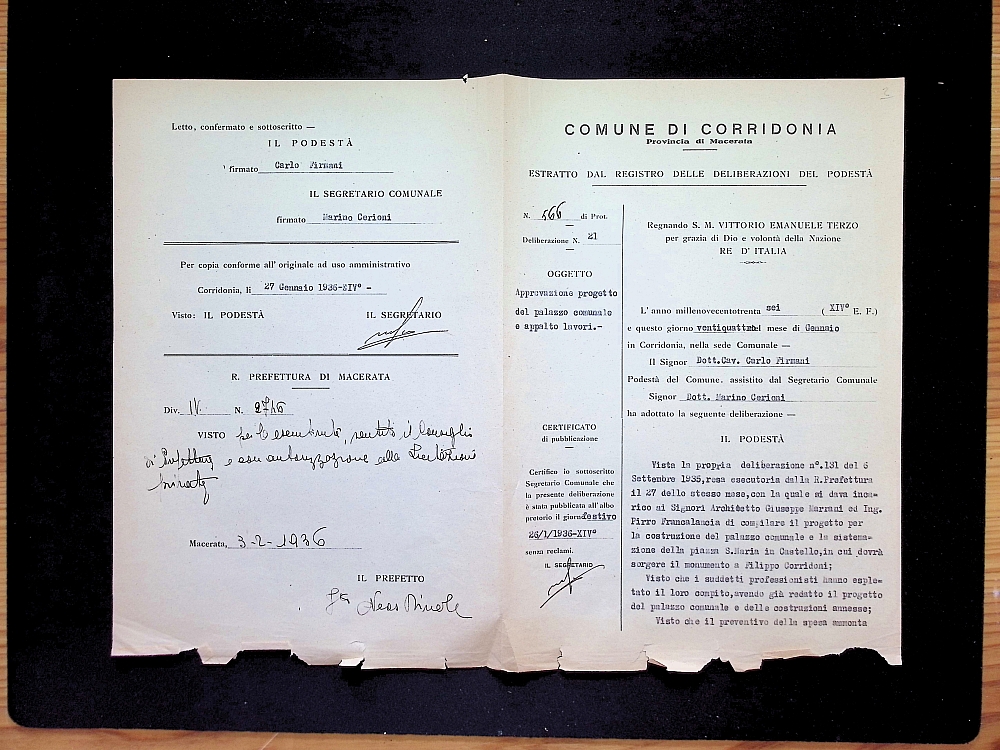 Letto, confermato e sottoscritto —
IL PODESTÀ
firmato Carlo Firmani
IL SEGRETARIO COMUNALE
firmato Marino Cerioni
Per copia conforme all' originale ad uso amministrativo
Corridonia, lì 27 Gennaio 1936-XIV° -
Visto: IL PODESTÀ IL SEGRETARIO
R. PREFETTURA DI MACERATA
Div. IV. N. 2746
VISTO per la esecutorietà, sentito il Consiglio
di Prefettura e con autorizzazione alla licitazione
privata
Macerata, 3-2-1936
IL PREFETTO
2
COMUNE DI CORRIDONIA
Provincia di Macerata
ESTRATTO DAL REGISTRO DELLE DELIBERAZIONI DEL PODESTÀ
N. 566 di Prot.
Deliberazione N. 21
OGGETTO
Approvazione progetto
del palazzo comunale
e appalto lavori.-
CERTIFICATO
di pubblicazione
Certifico io sottoscritto
Segretario Comunale che
la presente deliberazione
è stata pubblicata all'albo
pretorio il giorno festivo
26/1/1936-XIV°
senza reclami.
IL SEGRETARIO
Regnando S. M. VITTORIO EMANUELE TERZO
per grazia di Dio e volontà della Nazione
RE D' ITALIA
L' anno millenovecentotrenta sei ( XIV° E. F.)
e questo giorno ventiquattro del mese di Gennaio
in Corridonia, nella sede Comunale —
Il Signor Dott.Cav. Carlo Firmani
Podestà del Comune. assistito dal Segretario Comunale
Signor Dott. Marino Cerioni
ha adottato la seguente deliberazione —
IL PODESTÀ
Vista la propria deliberazione n°.131 del 6
Settembre 1935,resa esecutoria dalla R.Prefettura
il 27 dello stesso mese,con la quale si dava inca-
rico ai Signori Architetto Giuseppe Marrani ed Ing.
Pirro Francalancia di compilare il progetto per
la costruzione del palazzo comunale e la sistema-
zione della piazza S.Maria in Castello,in cui dovrà
sorgere il monumento a Filippo Corridoni;
Visto che i suddetti professionisti hanno esple-
tato il loro compito,avendo già redatto il progetto
del palazzo comunale e delle costruzioni annesse;
Visto che il preventivo della spesa ammonta